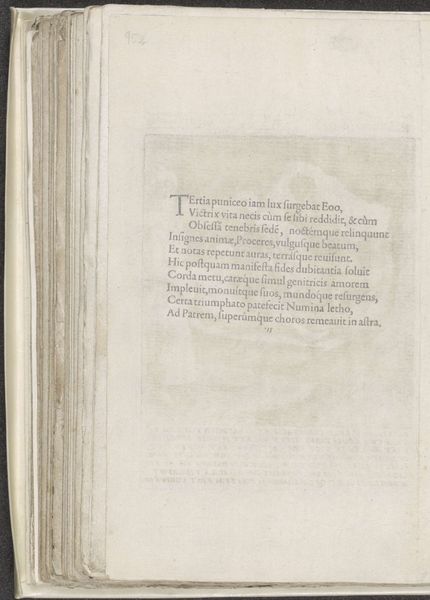 952
TErtia puniceo iam lux surgebat Eoo,
Victrix vita necis cùm se sibi reddidit, & cùm
Obsessã tenebris sedẽ, noctémque relinquunt
Insignes animæ, Proceres, vulgusque beatum,
Et notas repetunt auras, terrasque reuisunt.
Hic postquam manifesta fides dubitantia soluit
Corda metu, caræque simul genitricis amorem
Impleuit, monuitque suos, mundoque resurgens,
Certa triumphato patefecit Numina letho,
Ad Patrem, superûmque choros remeauit in astra.